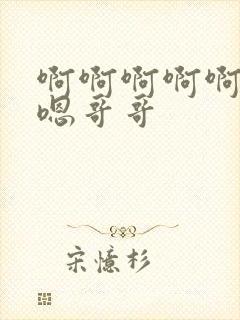 啊啊啊啊啊
嗯哥哥
宋憶杉